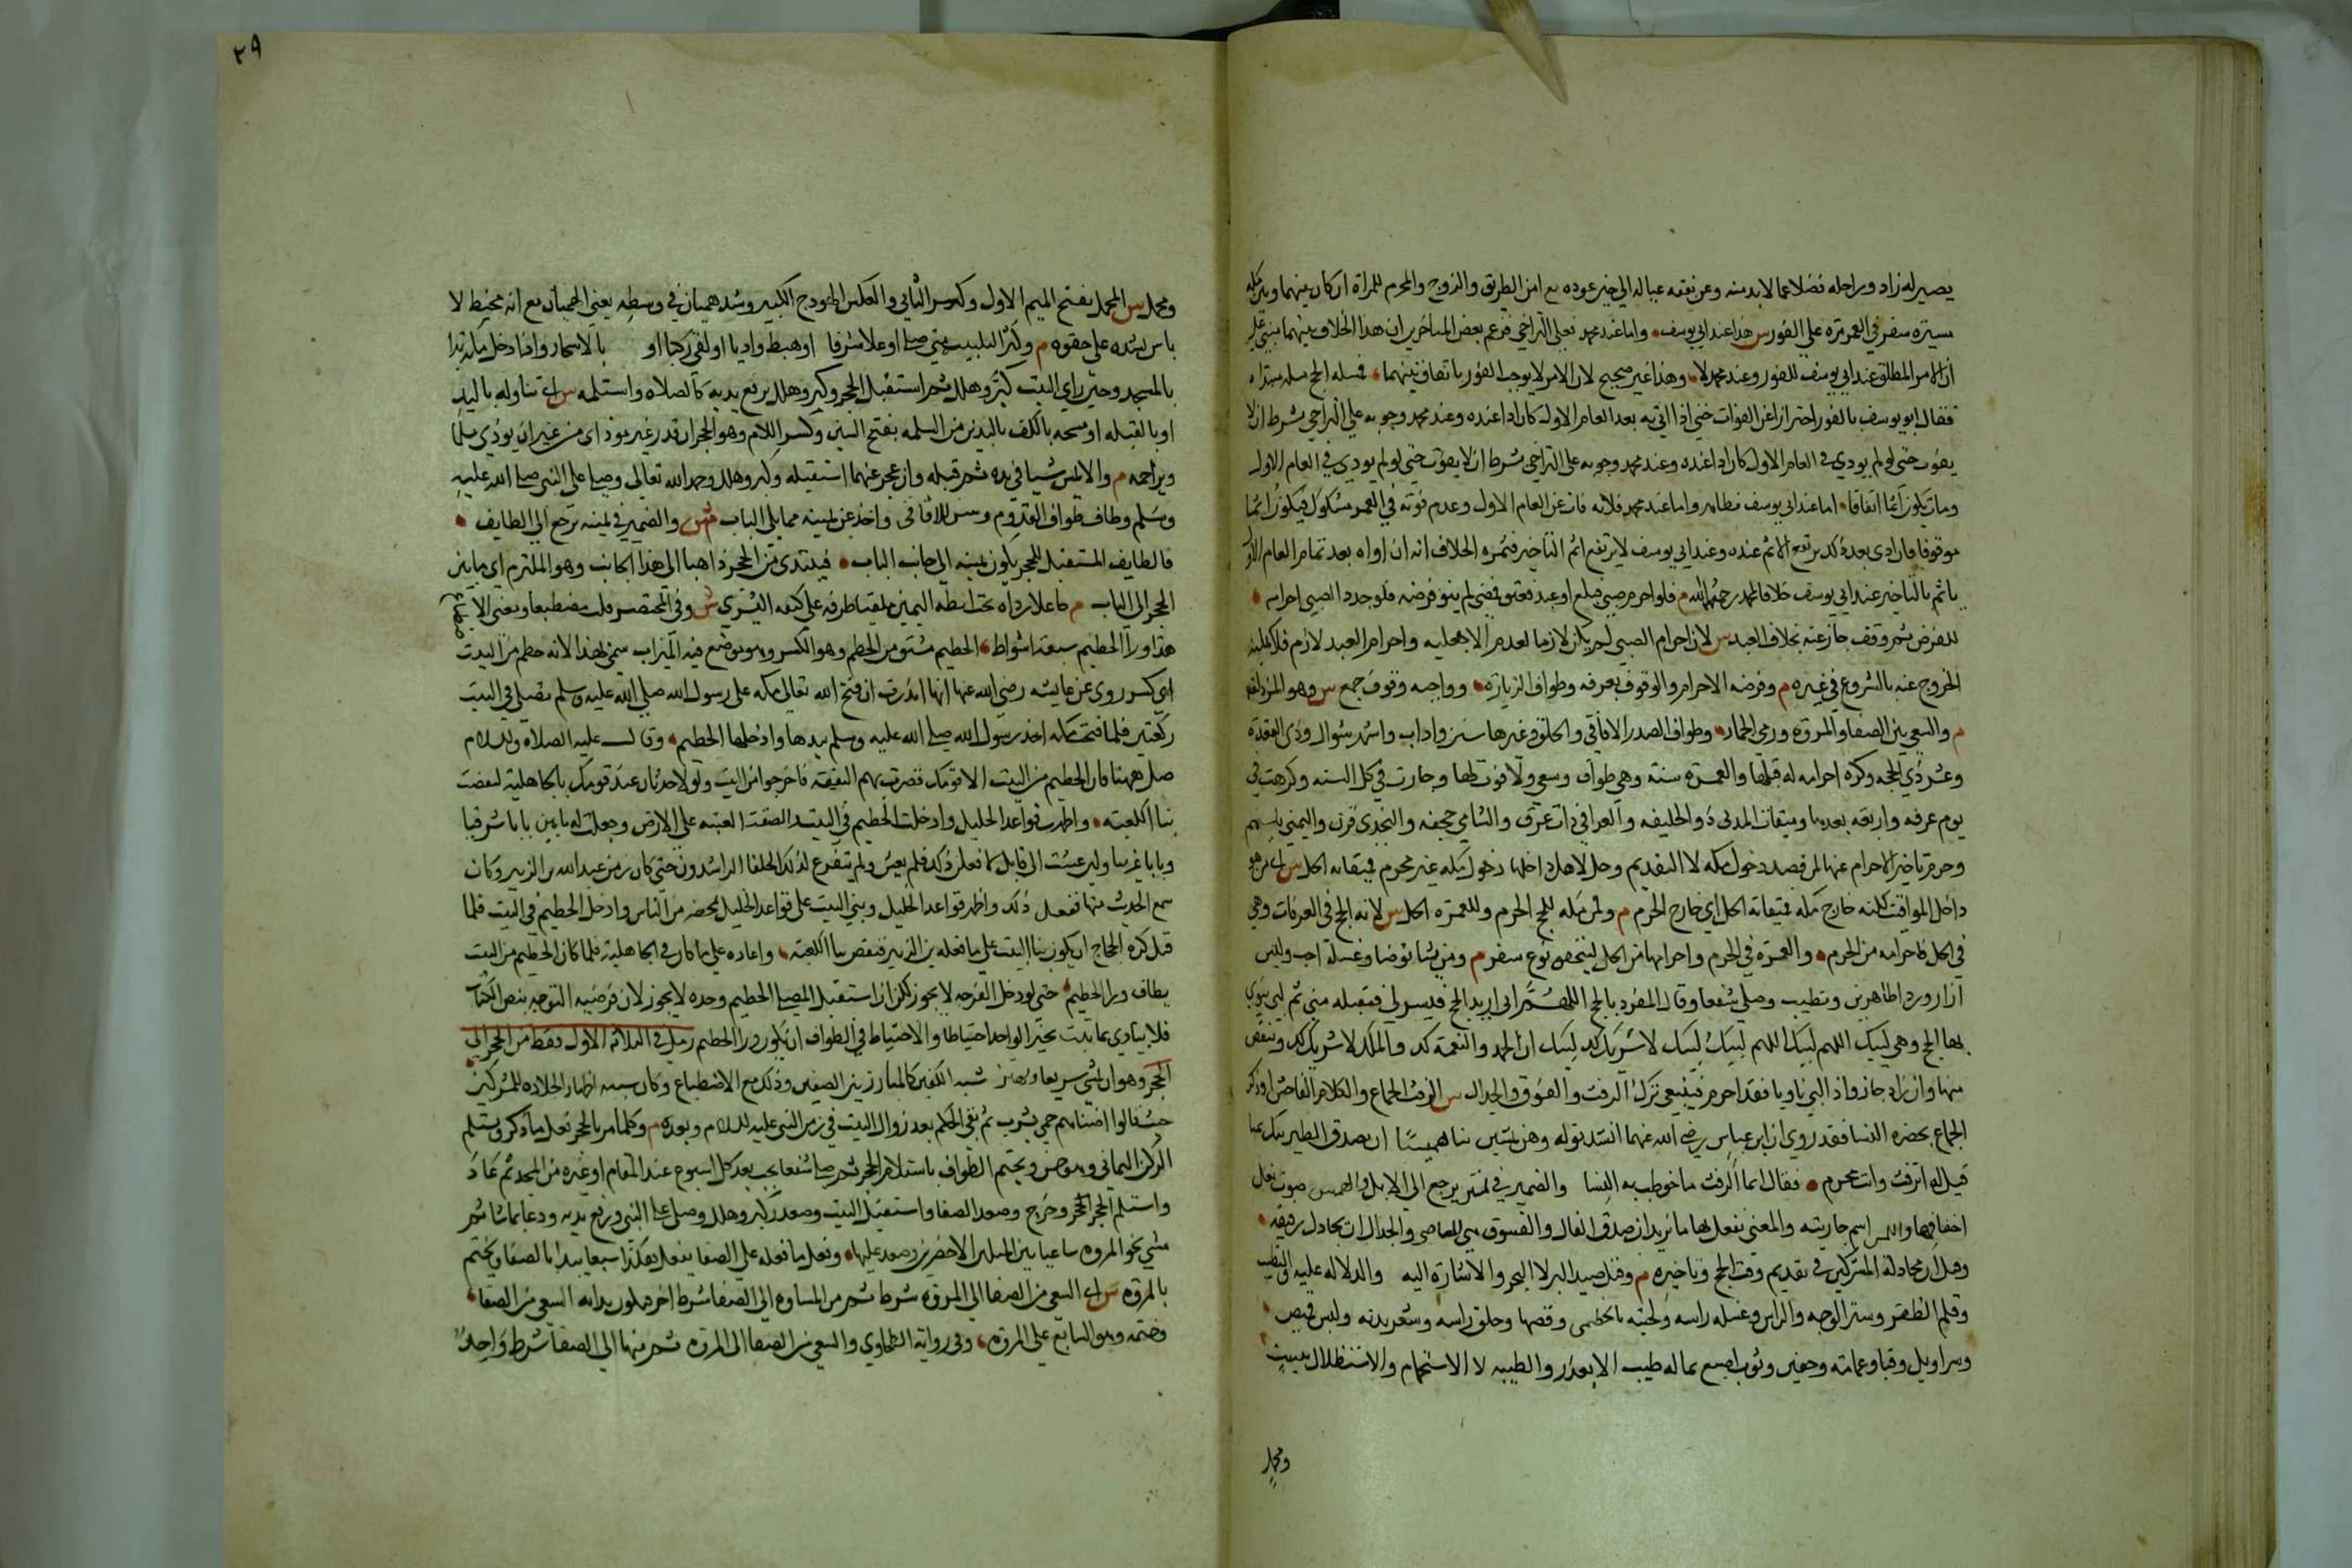 يصير له زاد وراحله فضلا عما لا بد منه وعن نفقه عياله الي حين عوده مع امن الطريق والزوج والمحرم للمراة ان كان بينهما وبين مكه
مسيرة سفر في العمر مرة علي الفور س هذا عند ابي يوسف واما عند محمد فعلي التراخي فزعم بعض المتاخرين ان هذا الخلاف بينهما مبني علي
ان الامر المطلق عند ابي يوسف للفور وعند محمد لا وهذا غير صحيح لان الامر لا يوجب الفور باتفاق بينهما فمسله الحج مسله مبتداه
فقال ابو يوسف بالفور احترازا عن الفوات حتي اذا اتي به بعد العام الاول كان اداعنده وعند محمد وجوبه علي التراخي بشرط ان لا
يفوت حتي لو لم يودي في العام الاول كان اداعنده وعند محمد وجوبه علي التراخي بشرط ان لا يفوت حتي لو لم يودي في العام الاول
ومات يكون اثما اتفاقا اما عند ابي يوسف فظاهر واما عند محمد فلانه فات عن العام الاول وعدم فوته في العمر مشكوك فيكون اثما
موقوفا فان ادي بعد ذلك يرتفع الاثم عنده وعند ابي يوسف لا يرتفع اثم التاخير فثمره الخلاف انه ان اداه بعد تمام العام الاول
ياثم بالتاخير عند ابي يوسف خلافا لمحمد رحمهما الله م فلو احرم صبي فبلغ او عبد فعتق فمضي لم يتو فرضه فلو جدد الصبي احرامه
للفرض ثم وقف جاز عنه بخلاف العبد س لان احرام الصبي لم يكن لازما لعدم الاهليه واحرام العبد لازم فلا يمكنه
الخروج عنه بالشروع في غيره م وفرضه الاحرام والوقوف بعرفه وطواف الزيارة وواجبه وقوف جمع س وهو المزدلفه
م والسعي بين الصفا والمروة ورمي الجمار وطواف الصدر للافاقي والحلق وغيرها سنن واداب واشهره شوال وذي القعدة
وعشر ذي الحجه وكره احرامه له قبلها والعمرة سنة وهي طواف وسعي ولا فوت لها وجازت في كل السنه وكرهت في
يوم عرفه واربعة بعدها وميقات المدني ذو الحليفه والعراقي ذات عرق والشامي جحفه والنجدي قرن واليمني يلملم
وحرم تاخير الاحرام عنها لمن قصد دخول مكه لا التقديم وحل لاهل داخلها دخول مكه غير محرم فميقاته الحل س اي من هو
داخل المواقيت لكنه خارج مكه فميقاته الحل اي خارج الحرم م ولمن بمكه للحج الحرم وللعمرة الحل س لانه الحج في العرفات وهي
في الحل فاحرامه من الحرم والعمرة في الحرم واحرامها من الحل ليتحقق نوع سفر م ومن شا توضا وغسله احب ولبس
ازارا وردا طاهرين وتطيب وصلي شفعا وقال المفرد بالحج اللهم اني اريد الحج فيسره لي فتقبله مني ثم لبي ينوي
بها الحج وهي لبيك اللهم لبيك اللهم لبيك لبيك لا شريك لك لبيك ان الحمد والنعمة لك والملك لا شريك لك وينقص
منها وان زاد جاز واذا لبي ناويا فقد احرم فيتقي ترك الرفث والفسوق والجدال س الرفث الجماع والكلام الفاحش او ذكر
الجماع بحضره النسا فقد روي ان ابن عباس رضي الله عنهما انشد قوله وهن يمشين بنا هميسًا ان يصدق الطير ننك لميسا
قيل له اترفث وانت محرم فقال انما الرفث ما خوطب به النسا والضمير في هن يرجع الي الابل والهميس صوت نعل
اخفافها ولميس اسم جاريته والمعني نفعل بها ما نريد ان صدق الفال والفسوق هي المعاصي والجدال ان يجادل رفيقه
وقيل ان مجادلة المشركين في تقديم وقت الحج وتاخيره م وقتل صيد البر لا البحر والاشارة اليه والدلاله عليه والتطيب
وقلم الظفر وستر الوجه والراس وغسله راسه ولحيته بالخطمي وقصها وحلق راسه وشعر بدنه ولبس قميص
وسراويل وقبا وعمامة وخفين وثوب صبغ بما له طيب الا بعد زوال طيبه لا الاستحمام والاستظلال ببيت
ومحمل
٢٩
ومحمل س المحمل بفتح الميم الاول وكسر الثاني والعكس الهودج الكبير وشد هميان في وسطه يعني الهميان مع انه مخيط لا
باس بشده علي حقوه م وكثر التلبيه متي صلي او علا شرفا او هبط واديا او لقي ركبا او بالاسحار واذا دخل مكه بدا
بالمسجد وحين راي البيت كبر وهلل ثم استقبل الحجر وكبر وهلل يرفع يديه كالصلاه واستلمه س اي تناوله باليد
او بالقبله او مسحه بالكف باليد من السلمه بفتح السين وكسر اللام وهو الحجر ان قدر غير موذ اي من غير ان يوذي مسلما
ويزاحمه م والا يمس شيا في يده ثم قبله وان عجز عنهما استقبله وكبر وهلل وحمد الله تعالي وصلي علي النبي صلي الله عليه
وسلم وطاف طواف القدوم وسن للافاقي واخذ عن يمينه مما يلي الباب ش والضمير في يمينه يرجع الي الطايف
فالطايف المستقبل للحجر يكون يمينه الي جانب الباب فيبتدي من الحجر ذاهبا الي هذا الجانب وهو الملتزم اي ما بين
الحجر الي الباب م جاعلا رداه تحت ابطه اليمين ملقيا طرفه علي كتفه اليسري ش وفي المختصر قلت مضطبعا ومعني الا
هذا ورا الحطيم سبعة اشواط الحطيم مشتق من الحطم وهو الكسر وهو موضع فيه الميزاب سمي بهذا لانه حطم من البيت
اي كسر روي عن عايشه رضي الله عنها انها نذرت ان فتح الله تعالي مكه علي رسول الله صلي الله عليه وسلم تصلي في البيت
ركعتين فلما فتحت مكه اخذ رسول الله صلي الله عليه وسلم بيدها وادخلها الحطيم وقال عليه الصلاه والسلام
صلي ههنا فان الحطيم من البيت الا قومك قصرت بهم النفقة فاخرجوا من البيت ولولا حدثان عهد قومك بالجاهلية لنقضت
بنا الكعبه واظهرت قواعد الخليل وادخلت الحطيم في البيت والصقت العتبه علي الارض وجعلت له بابين بابا شرقيا
وبابا غربيا ولين عشت الي قابل لافعلن ذلك فلم يعش ولم يتفرغ لذلك الخلفا الراشدون حتي كان زمن عبد الله بن الزبير وكان
سمع الحديث منها ففعل ذلك واظهر قواعد الخليل وبني البيت علي قواعد الخليل بمحضر من الناس وادخل الحطيم في البيت فلما
قتل كره الحجاج ان يكون بنا البيت علي ما فعله بن الزبير فنقض بنا الكعبة واعاده علي ما كان في الجاهلية فلما كان الحطيم من البيت
يطاف ورا الحطيم حتي لو دخل الفرجه لا يجوز لكن ان استقبل المصلي الحطيم وحده لا يجوز لان فرضيه التوجه بنص الكتاب
فلا يتادي بما ثبت بخبر الواحد احتياطا والاحتياط في الطواف ان يكون ورا الحطيم رمل في الثلاثه الاول فقط من الحجر الي
الحجر وهو ان يمشي سريعا ويهز شبه الكتفين كالمبارز بين الصفين وذلك مع الاضطباع وكان سببه اظهار الجلاده للمشركين
حيث قالوا اضناهم حمي يثرب ثم بقي الحكم بعد زوال السبب في زمن النبي عليه السلام وبعده م وكلما مر بالحجر فعل ما ذكر ويستلم
الركن اليماني وهو حسن ويختم الطواف باستلام الحجر ثم صلي شفعا يجب بعد كل اسبوع عند المقام او غيره من المسجد ثم عاد
واستلم الحجر وخرج وصعد الصفا واستقبل البيت وصعد وكبر وهلل وصلي علي النبي ورفع يديه ودعا بما شا ثم
مشي نحو المروه ساعيا بين الميلين الاخضرين وصعد عليها وفعل ما فعله علي الصفا يفعل هكذا سبعا يبدا بالصفا ويختم
بالمروة س اي السعي من الصفا الي المروة شوط ثم من المروه الي الصفا شوط اخر فيكون بدايه السعي من الصفا
وختمه وهو السابع علي المروه وفي رواية الطحاوي والسعي من الصفا الي المروه ثم منها الي الصفا شوط واحد